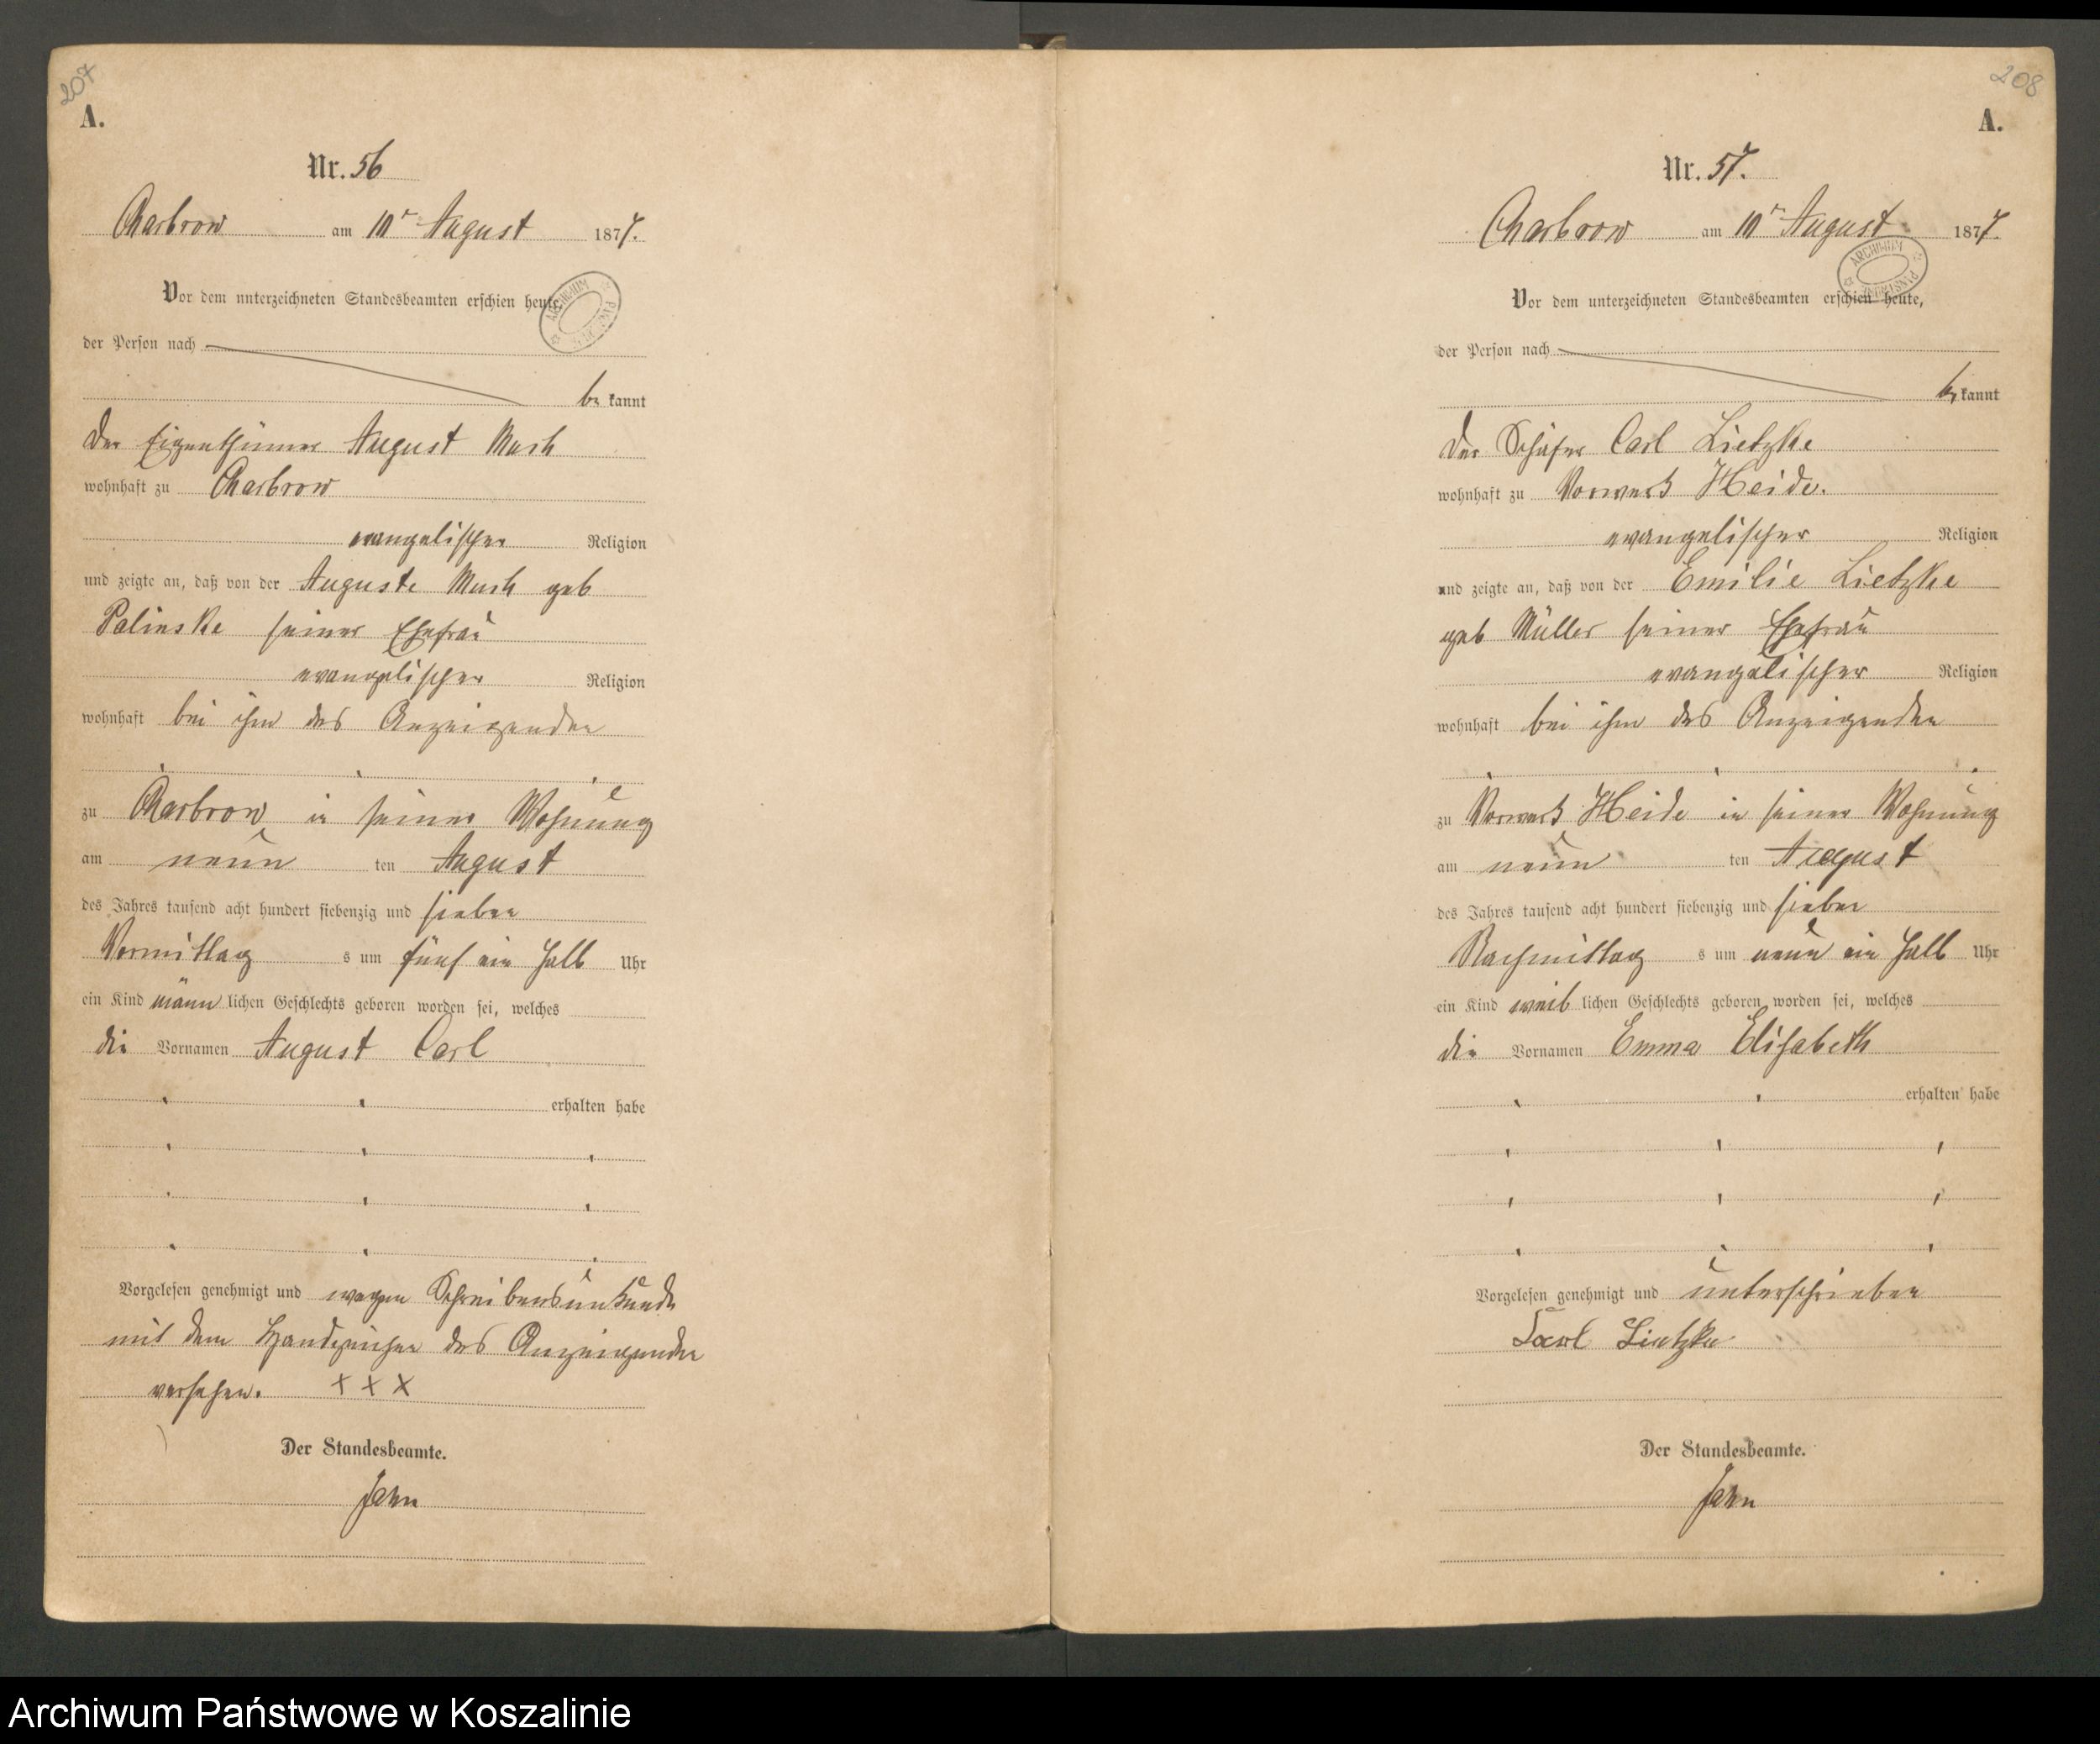 207
A.
Nr. 56
Charbrow am 10r August 1877.
Vor dem unterzeichneten Standesbeamten erschien heute,
der Person nach
be kannt
der Eigenthümer August
wohnhaft zu Charbrow
evangelischer Religion
und zeigte an, daß von der Auguste geb
Palinske seiner Ehefrau
evangelischer Religion
wohnhaft bei ihm des Anzeigenden
zu Charbrow in seiner Wohnung
am neun ten August
des Jahres tausend acht hundert siebenzig und sieben
Vormittag s um fünf ein halb Uhr
ein Kind männ lichen Geschlechts geboren worden sei, welches
die Vornamen August Carl
erhalten habe
Vorgelesen genehmigt und wegen Schreibensunkunde
mit dem Handzeichen des Anzeigenden
versehen. + + X
Der Standesbeamte.
Jahn
208
A.
Nr. 57.
Charbrow am 10r August 1877.
Vor dem unterzeichneten Standesbeamten erschien heute,
der Person nach
be kannt
der Schäfer Carl Lietzke
wohnhaft zu Vorwerk Heide.
evangelischer Religion
und zeigte an, daß von der Emilie Lietzke
geb Müller seiner Ehefrau
evangelischer Religion
wohnhaft bei ihm des Anzeigenden
zu Vorwerk Heide in seiner Wohnung
am neun ten August
des Jahres tausend acht hundert siebenzig und sieben
Nachmittag s um neun ein halb Uhr
ein Kind weib lichen Geschlechts geboren worden sei, welches
die Vornamen Emma Elisabeth
erhalten habe
Vorgelesen genehmigt und unterschrieben
Carl Lietzke
Der Standesbeamte.
Jahn
Archiwum Państwowe w Koszalinie